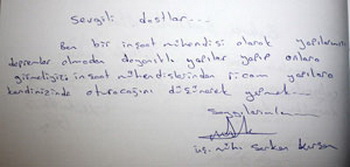 Sevgili dostlar...
Ben bir inşaat mühendisi olarak yapılarımızı
depremler olmadan dayanıklı yapılar yapıp onlara
inşaat mühendislerinden ricam yapılara
kendinizinde oturacağını düşünerek yapmak...
Saygılarımla...
inş. müh. Serkan